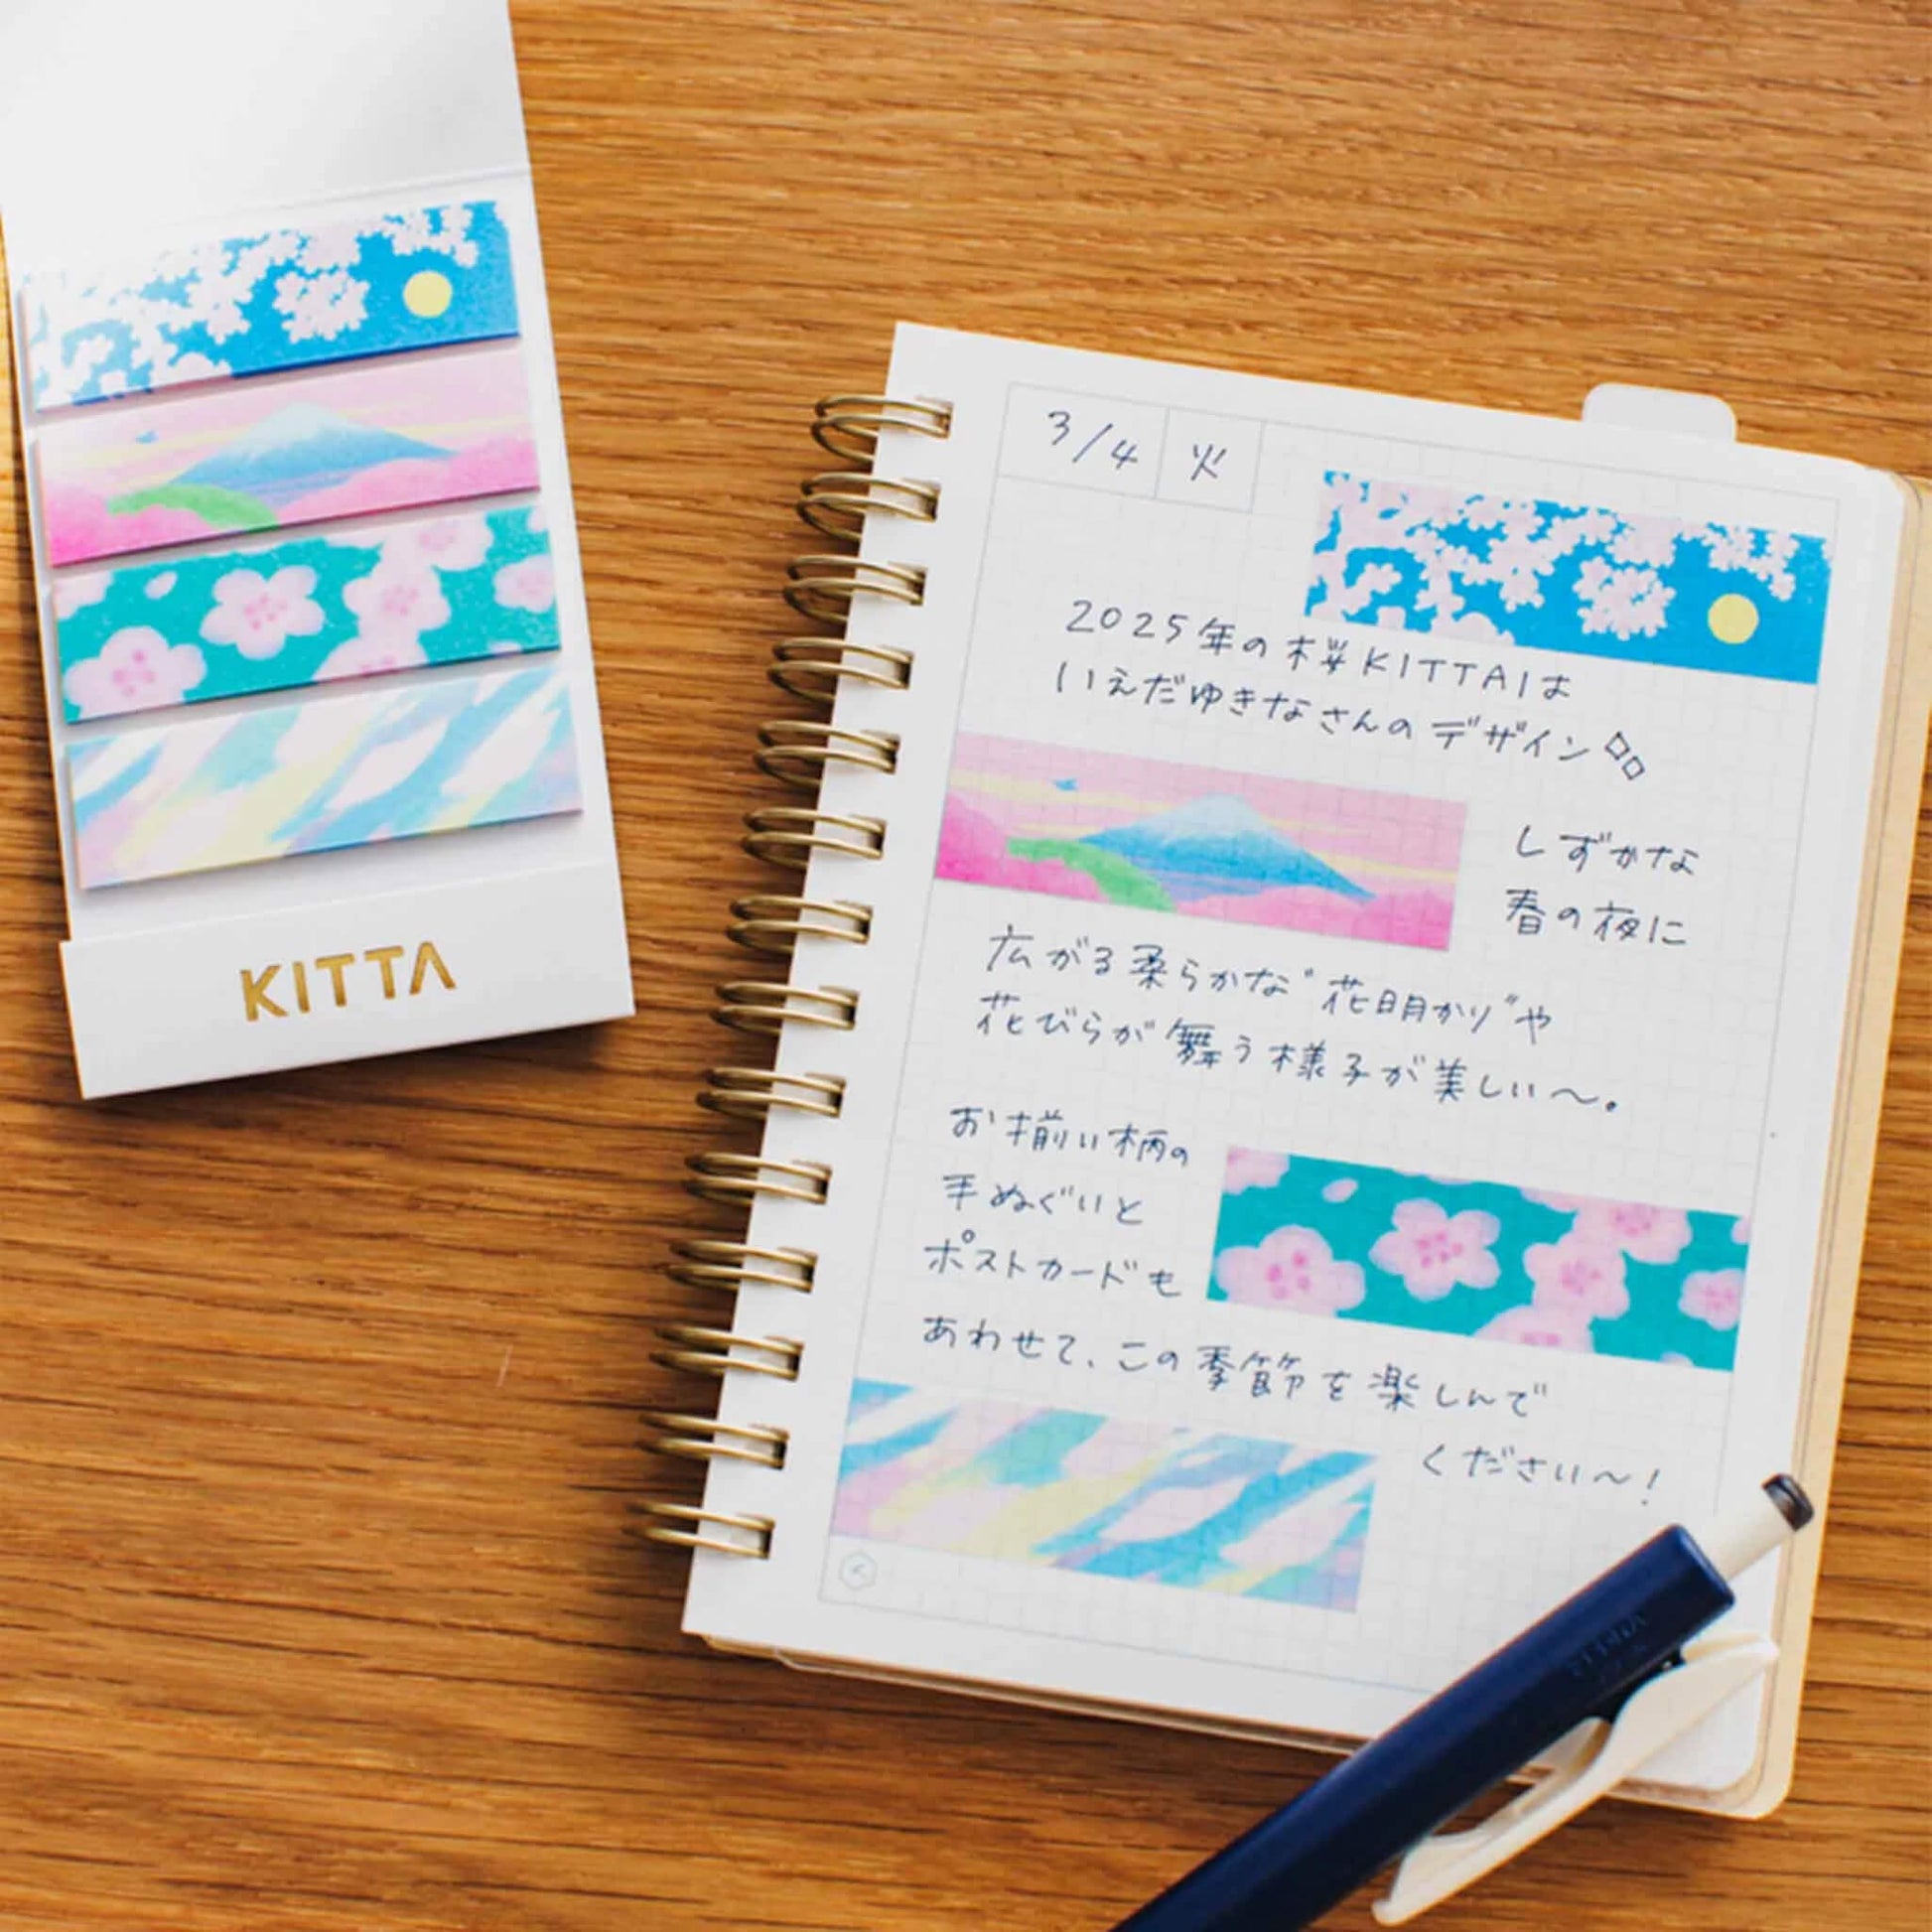 KITTA
3/4 火
2025年の桜KITTAは
いえだゆきなさんのデザイン
しずかな
春の夜に
広がる柔らかな"花明かり"や
花びらが舞う様子が美しい〜。
お揃い柄の
手ぬぐいと
ポストカードも
あわせて、この季節を楽しんで
ください〜!